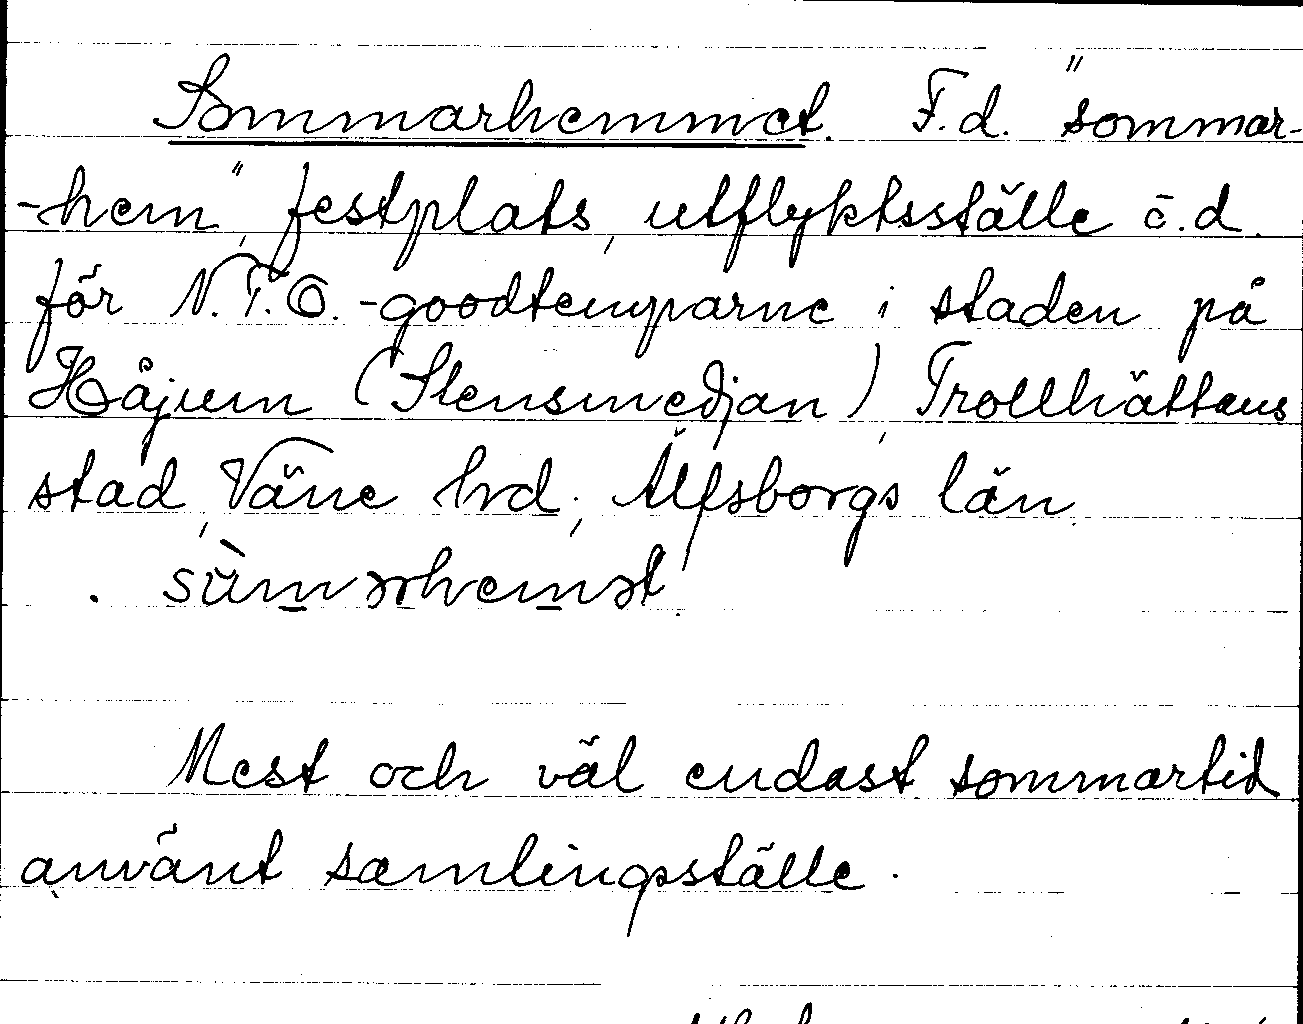 Sommarhemmet. F.d. "sommar-
-hem", festplats, utflyktsställe o.d.
för N.T.O.-goodtemparne i staden på
Håjum (Stensmedjan), Trollhättans
stad, Väne hrd, Älfsborgs län.
Mest och väl endast sommartid
använt samlingsställe.